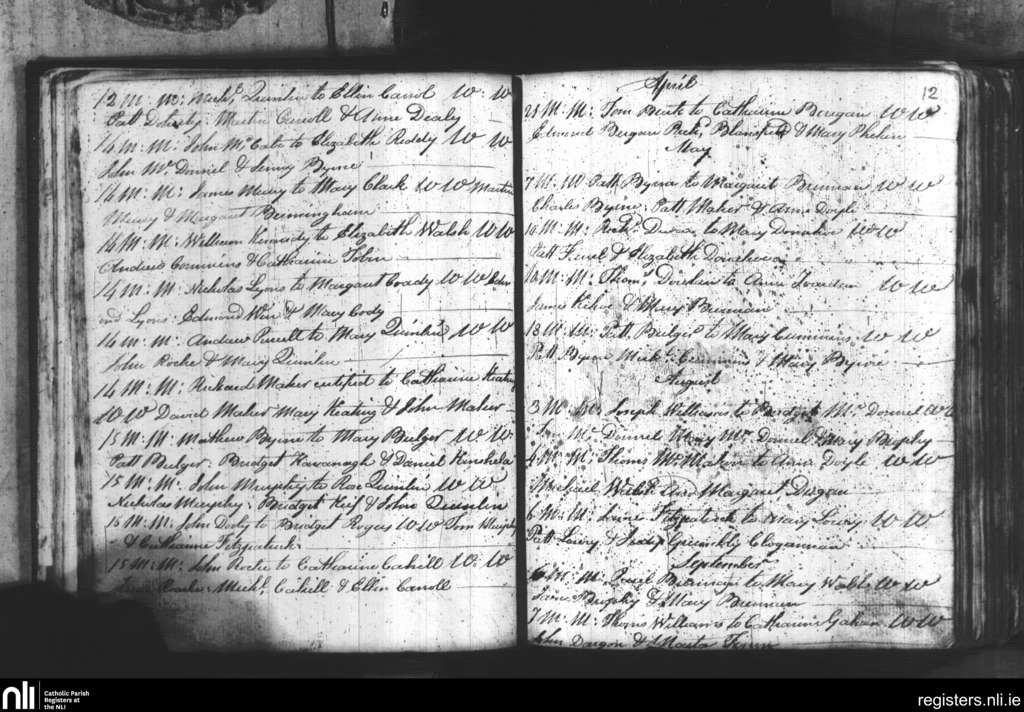 12 M: M: Mich.l Quinlin to Ellin Carrol W: W
Patt Doherty: Martin Carroll & Anne Dealy
14 M: M: John Mc Cabe to Elizabeth Reddy W W
John Mc Donnel & Jenny Byrne
14 M: M: James Meary to Mary Clark W W Martin
Meary & Margaret Bermingham
14 M: M: William Kennedy to Elizabeth Walsh W W
Andrew Commins & Catharine Tobin
14 M: M: Nicholas Lyons to Margaret Coady W W
Lyons: Edmond & Mary Cody
14 M: M: Andrew Purcell to Mary Quinlin W W
John Roche & Mary Quinlin
14 M: M: Richard Maher certified to Catharine Keating
W W David Maher Mary Keating & John Maher
15 M: M: Mathew Byrne to Mary Bulger W W
Patt Bulger: Bridget Kavanagh & Daniel Kinshela
15 M: M: John Murphy to Quinlin W W
Nicholas Murphy: Bridget Keif & John Quinlin
15 M: M: John Dooly to Bridget Rogers W W Murphy
& Catharine Fitzpatrick
15 M: M: John Roche to Catharine Cahill W: W
Roche: Mich.l Cahill & Ellin Carroll
April
12
28 M: M: Tom to Catharine Bergan W W
Edmond Bergan Rich.d Blansfield & Mary Phelan
May
7 M: M Patt Byrne to Margaret Brennan W W
Charles Byrne: Patt Maher & Ann Doyle
10 M: M: to Mary Donahue W W
Patt & Elizabeth Donahue
M: M: Thom.s to Ann W W
James & Mary Brennan
18 M: M: Patt Bulger to Mary Cummins W W
Patt Byrne Mich.l Cummins & Mary Byrne
August
3 M: M: Joseph Williams to Bridget Mc Donnel W W
Mc Donnel Mary Mc Donnel & Mary Brophy
4 M: M: Thoms McMahon to Ann Doyle W W
Michael Walsh Margaret
6 M: M: Fitzpatrick to Mary Lowry W W
Patt Lowry & Cloganman
September
6 M: M: Brennan to Mary Walsh W W
James Brophy & Mary Brennan
7 M: M: Thoms Williams to Catharine Gahan W W
John &
nli
Catholic Parish
Registers at
the NLI
registers.nli.ie